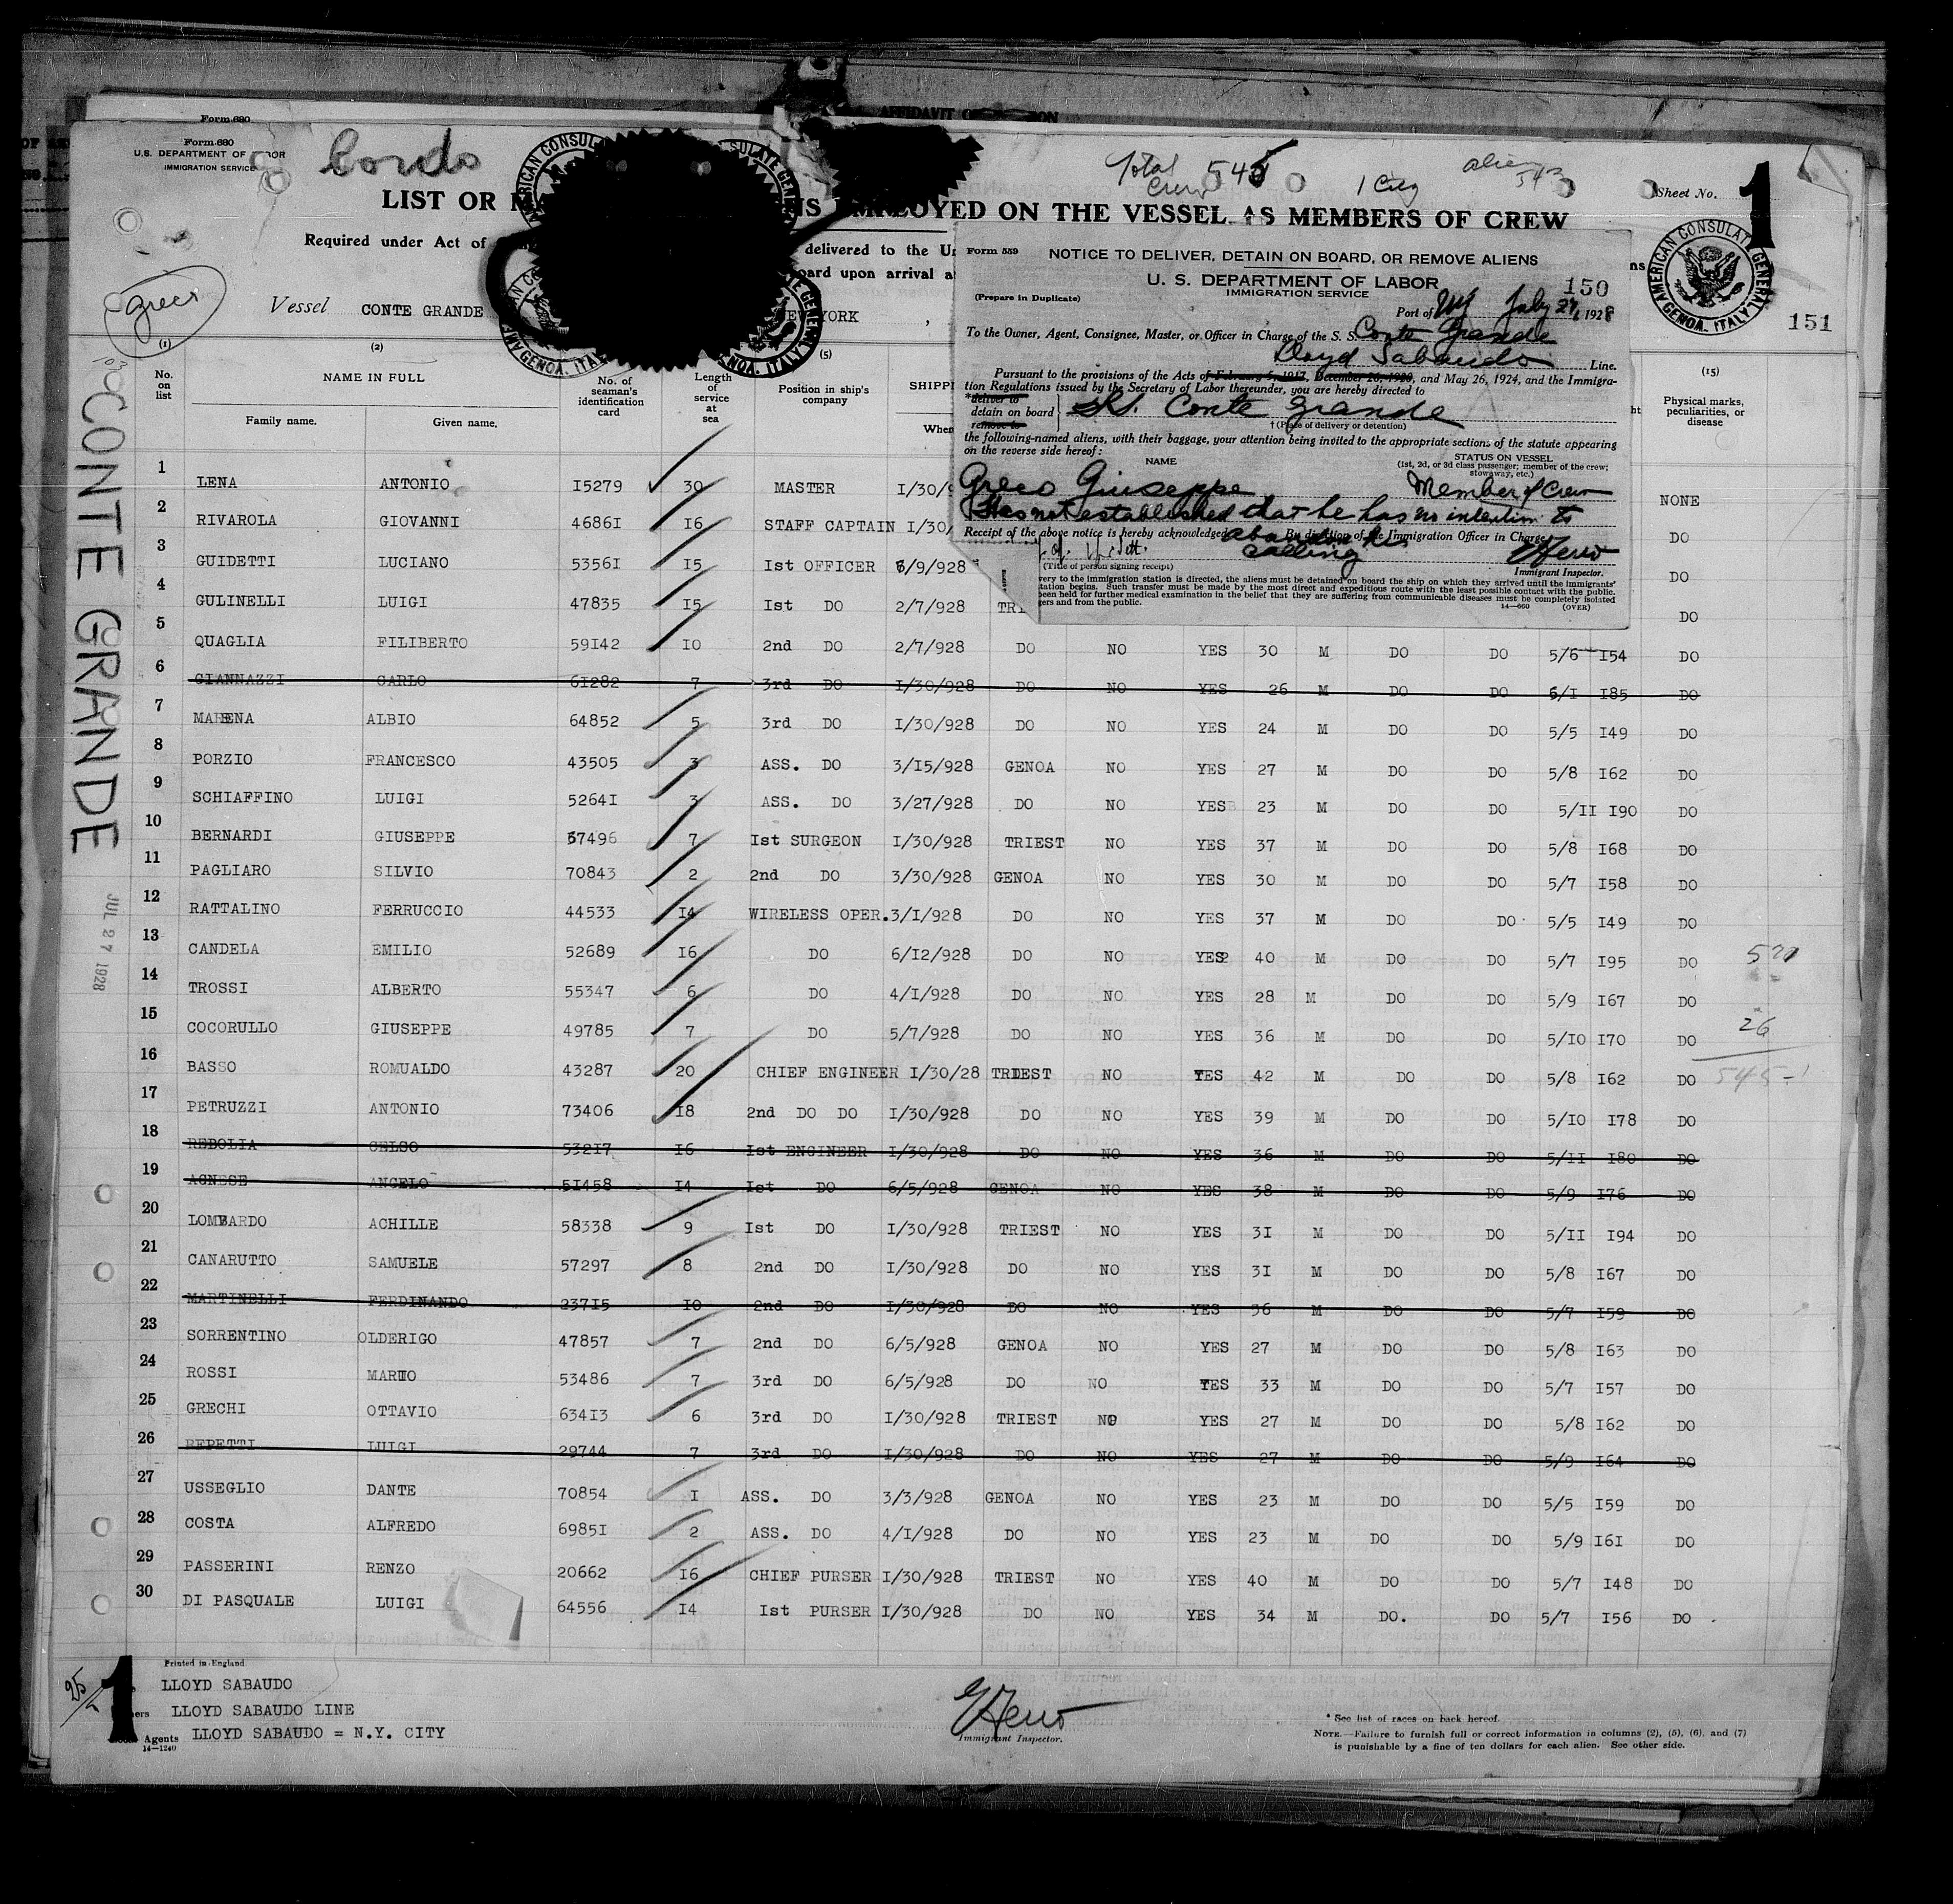 Form 680
Form 680
U.S. DEPARTMENT OF LABOR
IMMIGRATION SERVICE
AFFIDAVIT OF
Total Crew 545
1 Citz
alien 543
Sheet No. 1
LIST OR MA NS EMPLOYED ON THE VESSEL AS MEMBERS OF CREW
Required under Act of
delivered to the Un
board upon arrival a
AMERICAN CONSULATE GENERAL
GENOA, ITALY
Greco
Vessel CONTE GRANDE
NEW YORK ,
151
Form 559
NOTICE TO DELIVER, DETAIN ON BOARD, OR REMOVE ALIENS
U. S. DEPARTMENT OF LABOR
IMMIGRATION SERVICE
150
(Prepare in Duplicate)
Port of NY July 27, 1928
To the Owner, Agent, Consignee, Master, or Officer in Charge of the S. S. Conte Grande
Lloyd Sabaudo Line.
Pursuant to the provisions of the Acts of February 5, 1917, December 26, 1920, and May 26, 1924, and the Immigra-
tion Regulations issued by the Secretary of Labor thereunder, you are hereby directed to
*deliver to
detain on board
remove to
S.S. Conte Grande
† (Place of delivery or detention)
the following-named aliens, with their baggage, your attention being invited to the appropriate sections of the statute appearing
on the reverse side hereof:
NAME
STATUS ON VESSEL
(1st, 2d, or 3d class passenger; member of the crew;
stowaway, etc.)
Greco Giuseppe Member of Crew
Has not established that he has no intention to
abandon his calling
Receipt of the above notice is hereby acknowledged
By direction of the Immigration Officer in Charge
(Title of person signing receipt)
Immigrant Inspector.
very to the immigration station is directed, the aliens must be detained on board the ship on which they arrived until the immigrants'
tation begins. Such transfer must be made by the most direct and expeditious route with the least possible contact with the public.
been held for further medical examination in the belief that they are suffering from communicable diseases must be completely isolated
gers and from the public.
14—660 (OVER)
(1) (2) (5) (15)
No. on list
NAME IN FULL
Family name. Given name.
No. of seaman's identification card
Length of service at sea
Position in ship's company
SHIPP
When
Physical marks, peculiarities, or disease
CONTE GRANDE
JUL 27 1928
1 LENA ANTONIO I5279 30 MASTER I/30/9 NONE
2 RIVAROLA GIOVANNI 4686I I6 STAFF CAPTAIN I/30/ DO
3 GUIDETTI LUCIANO 5356I I5 Ist OFFICER 3/9/928 DO
4 GULINELLI LUIGI 47835 I5 Ist DO 2/7/928 TRI DO
5 QUAGLIA FILIBERTO 59I42 IO 2nd DO 2/7/928 DO NO YES 30 M DO DO 5/6 I54 DO
6 GIANNAZZI CARLO 6I282 7 3rd DO I/30/928 DO NO YES 26 M DO DO 6/I I85 DO
7 MARENA ALBIO 64852 5 3rd DO I/30/928 DO NO YES 24 M DO DO 5/5 I49 DO
8 PORZIO FRANCESCO 43505 3 ASS. DO 3/I5/928 GENOA NO YES 27 M DO DO 5/8 I62 DO
9 SCHIAFFINO LUIGI 5264I 3 ASS. DO 3/27/928 DO NO YES 23 M DO DO 5/II I90 DO
10 BERNARDI GIUSEPPE 67496 7 Ist SURGEON I/30/928 TRIEST NO YES 37 M DO DO 5/8 I68 DO
11 PAGLIARO SILVIO 70843 2 2nd DO 3/30/928 GENOA NO YES 30 M DO DO 5/7 I58 DO
12 RATTALINO FERRUCCIO 44533 I4 WIRELESS OPER. 3/I/928 DO NO YES 37 M DO DO 5/5 I49 DO
13 CANDELA EMILIO 52689 I6 DO 6/I2/928 DO NO YES 40 M DO DO 5/7 I95 DO
14 TROSSI ALBERTO 55347 6 DO 4/I/928 DO NO YES 28 M DO DO 5/9 I67 DO
15 COCORULLO GIUSEPPE 49785 7 DO 5/7/928 DO NO YES 36 M DO DO 5/IO I70 DO 26
16 BASSO ROMUALDO 43287 20 CHIEF ENGINEER I/30/28 TRIEST NO YES 42 M DO DO 5/8 I62 DO 545
17 PETRUZZI ANTONIO 73406 I8 2nd DO DO I/30/928 DO NO YES 39 M DO DO 5/IO I78 DO
18 REDOLIA CELSO 532I7 I6 Ist ENGINEER I/30/928 DO NO YES 36 M DO DO 5/II I80 DO
19 AGNESE ANGELO 5I458 I4 Ist DO 6/5/928 GENOA NO YES 38 M DO DO 5/9 I76 DO
20 LOMBARDO ACHILLE 58338 9 Ist DO I/30/928 TRIEST NO YES 3I M DO DO 5/II I94 DO
21 CANARUTTO SAMUELE 57297 8 2nd DO I/30/928 DO NO YES 3I M DO DO 5/8 I67 DO
22 MARTINELLI FERDINANDO 237I5 IO 2nd DO I/30/928 DO NO YES 36 M DO DO 5/7 I59 DO
23 SORRENTINO OLDERIGO 47857 7 2nd DO 6/5/928 GENOA NO YES 27 M DO DO 5/8 I63 DO
24 ROSSI MARIO 53486 7 3rd DO 6/5/928 DO NO YES 33 M DO DO 5/7 I57 DO
25 GRECHI OTTAVIO 634I3 6 3rd DO I/30/928 TRIEST NO YES 27 M DO DO 5/8 I62 DO
26 REPETTI LUIGI 29744 7 3rd DO I/30/928 DO NO YES 27 M DO DO 5/9 I64 DO
27 USSEGLIO DANTE 70854 I ASS. DO 3/3/928 GENOA NO YES 23 M DO DO 5/5 I59 DO
28 COSTA ALFREDO 6985I 2 ASS. DO 4/I/928 DO NO YES 23 M DO DO 5/9 I6I DO
29 PASSERINI RENZO 20662 I6 CHIEF PURSER I/30/928 TRIEST NO YES 40 M DO DO 5/7 I48 DO
30 DI PASQUALE LUIGI 64556 I4 Ist PURSER I/30/928 DO NO YES 34 M DO. DO 5/7 I56 DO
Printed in England.
25
1
LLOYD SABAUDO
LLOYD SABAUDO LINE
Agents LLOYD SABAUDO = N.Y. CITY
14—1240
Immigrant Inspector.
* See list of races on back hereof.
NOTE.—Failure to furnish full or correct information in columns (2), (5), (6), and (7)
is punishable by a fine of ten dollars for each alien. See other side.